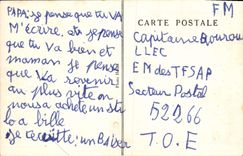 PAPA, je pense que tu VA
M'écrire, et je pense
que tu va bien et
maman je pense
que Va revenir
au plus vite on
nous a acheté un sty
lo a bille
je
FM
CARTE POSTALE
Capitaine
LLEC
EM des TFSAP
Secteur Postal
52266
T.O.E